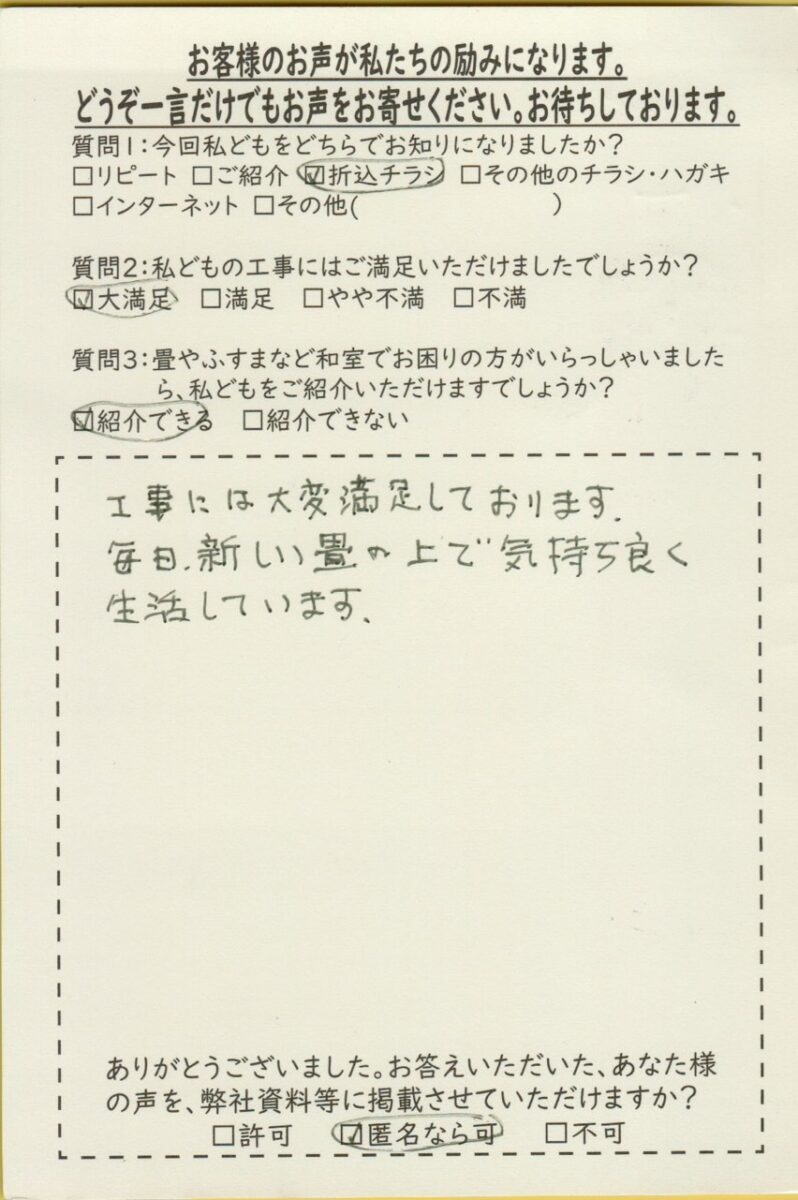 お客様のお声が私たちの励みになります。
どうぞ一言だけでもお声をお寄せください。お待ちしております。
質問1:今回私どもをどちらでお知りになりましたか?
□リピート □ご紹介 ☑折込チラシ □その他のチラシ・ハガキ
□インターネット □その他( )
質問2:私どもの工事にはご満足いただけましたでしょうか?
☑大満足 □満足 □やや不満 □不満
質問3:畳やふすまなど和室でお困りの方がいらっしゃいました
ら、私どもをご紹介いただけますでしょうか?
☑紹介できる □紹介できない
工事には大変満足しております.
毎日.新しい畳の上で気持ち良く
生活しています.
ありがとうございました。お答えいただいた、あなた様
の声を、弊社資料等に掲載させていただけますか?
□許可 ☑匿名なら可 □不可